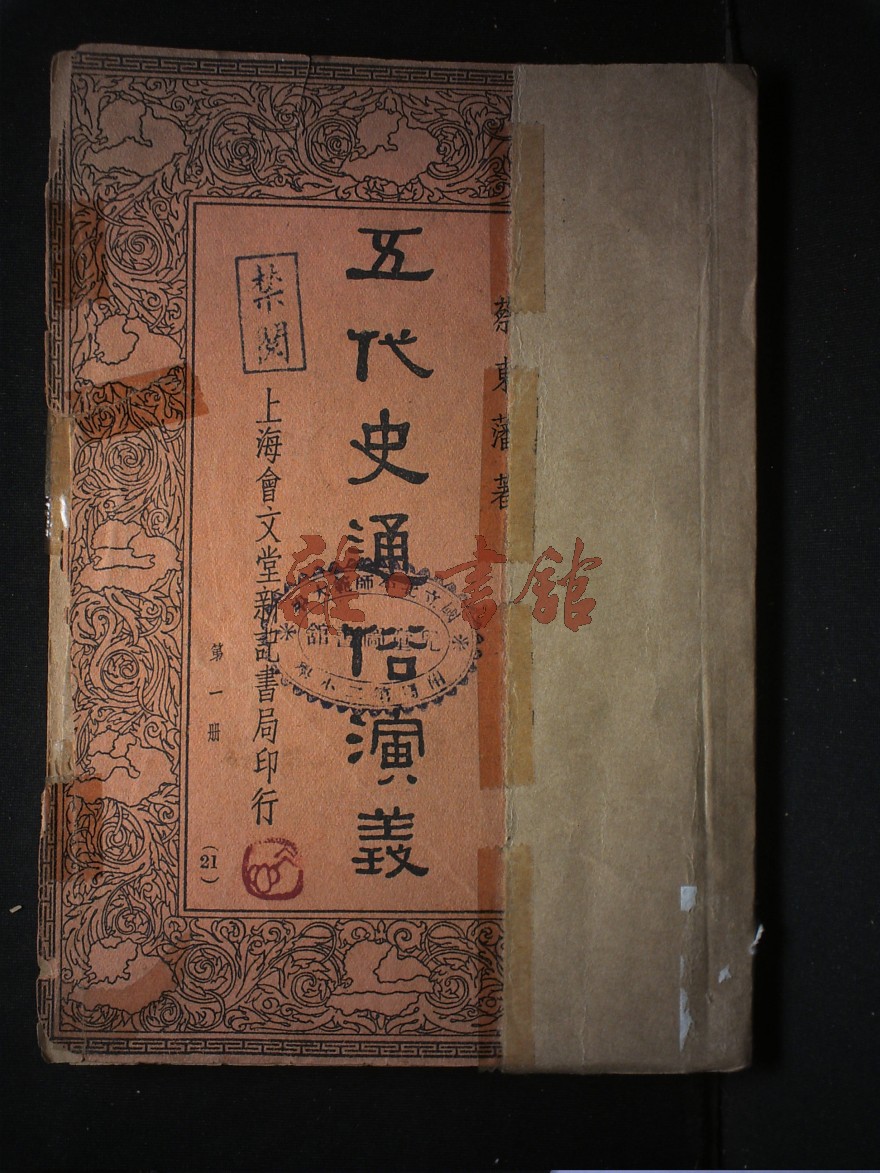 蔡東藩著
五代史通俗演義
禁閱
上海會文堂新記書局印行
第一册
(21)